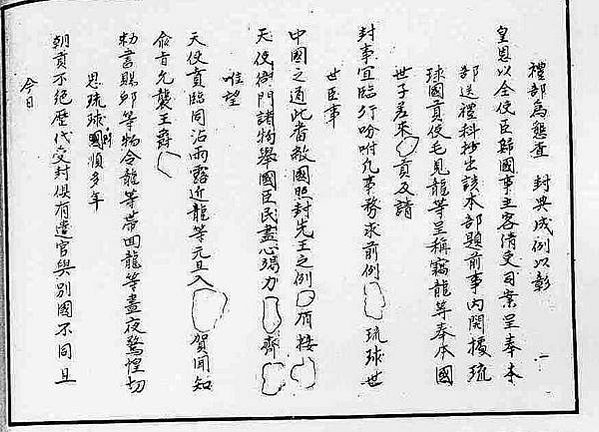 禮部為懇查 封典成例以彰
皇恩以全使臣歸國事主客清吏司案呈奉本
部送禮科抄出該本部題前事內開據琉
球國貢使毛見龍等呈稱竊龍等奉本國
世子差來 貢及請
封事宜臨行吩咐凡事務求前例 琉球世
世臣事
中國之通此番敝國照封先王之例 頂接
天使衙門諸物舉國臣民盡心竭力 齊
唯望
天使賁臨同沾雨露近龍等元旦入 賀聞知
俞旨允襲王爵
勅書賜郎等物令龍等帶回龍等晝夜驚惶切
思琉球國 順多年
朝貢不絕歷代受封俱有遣官與別國不同且
今日
一